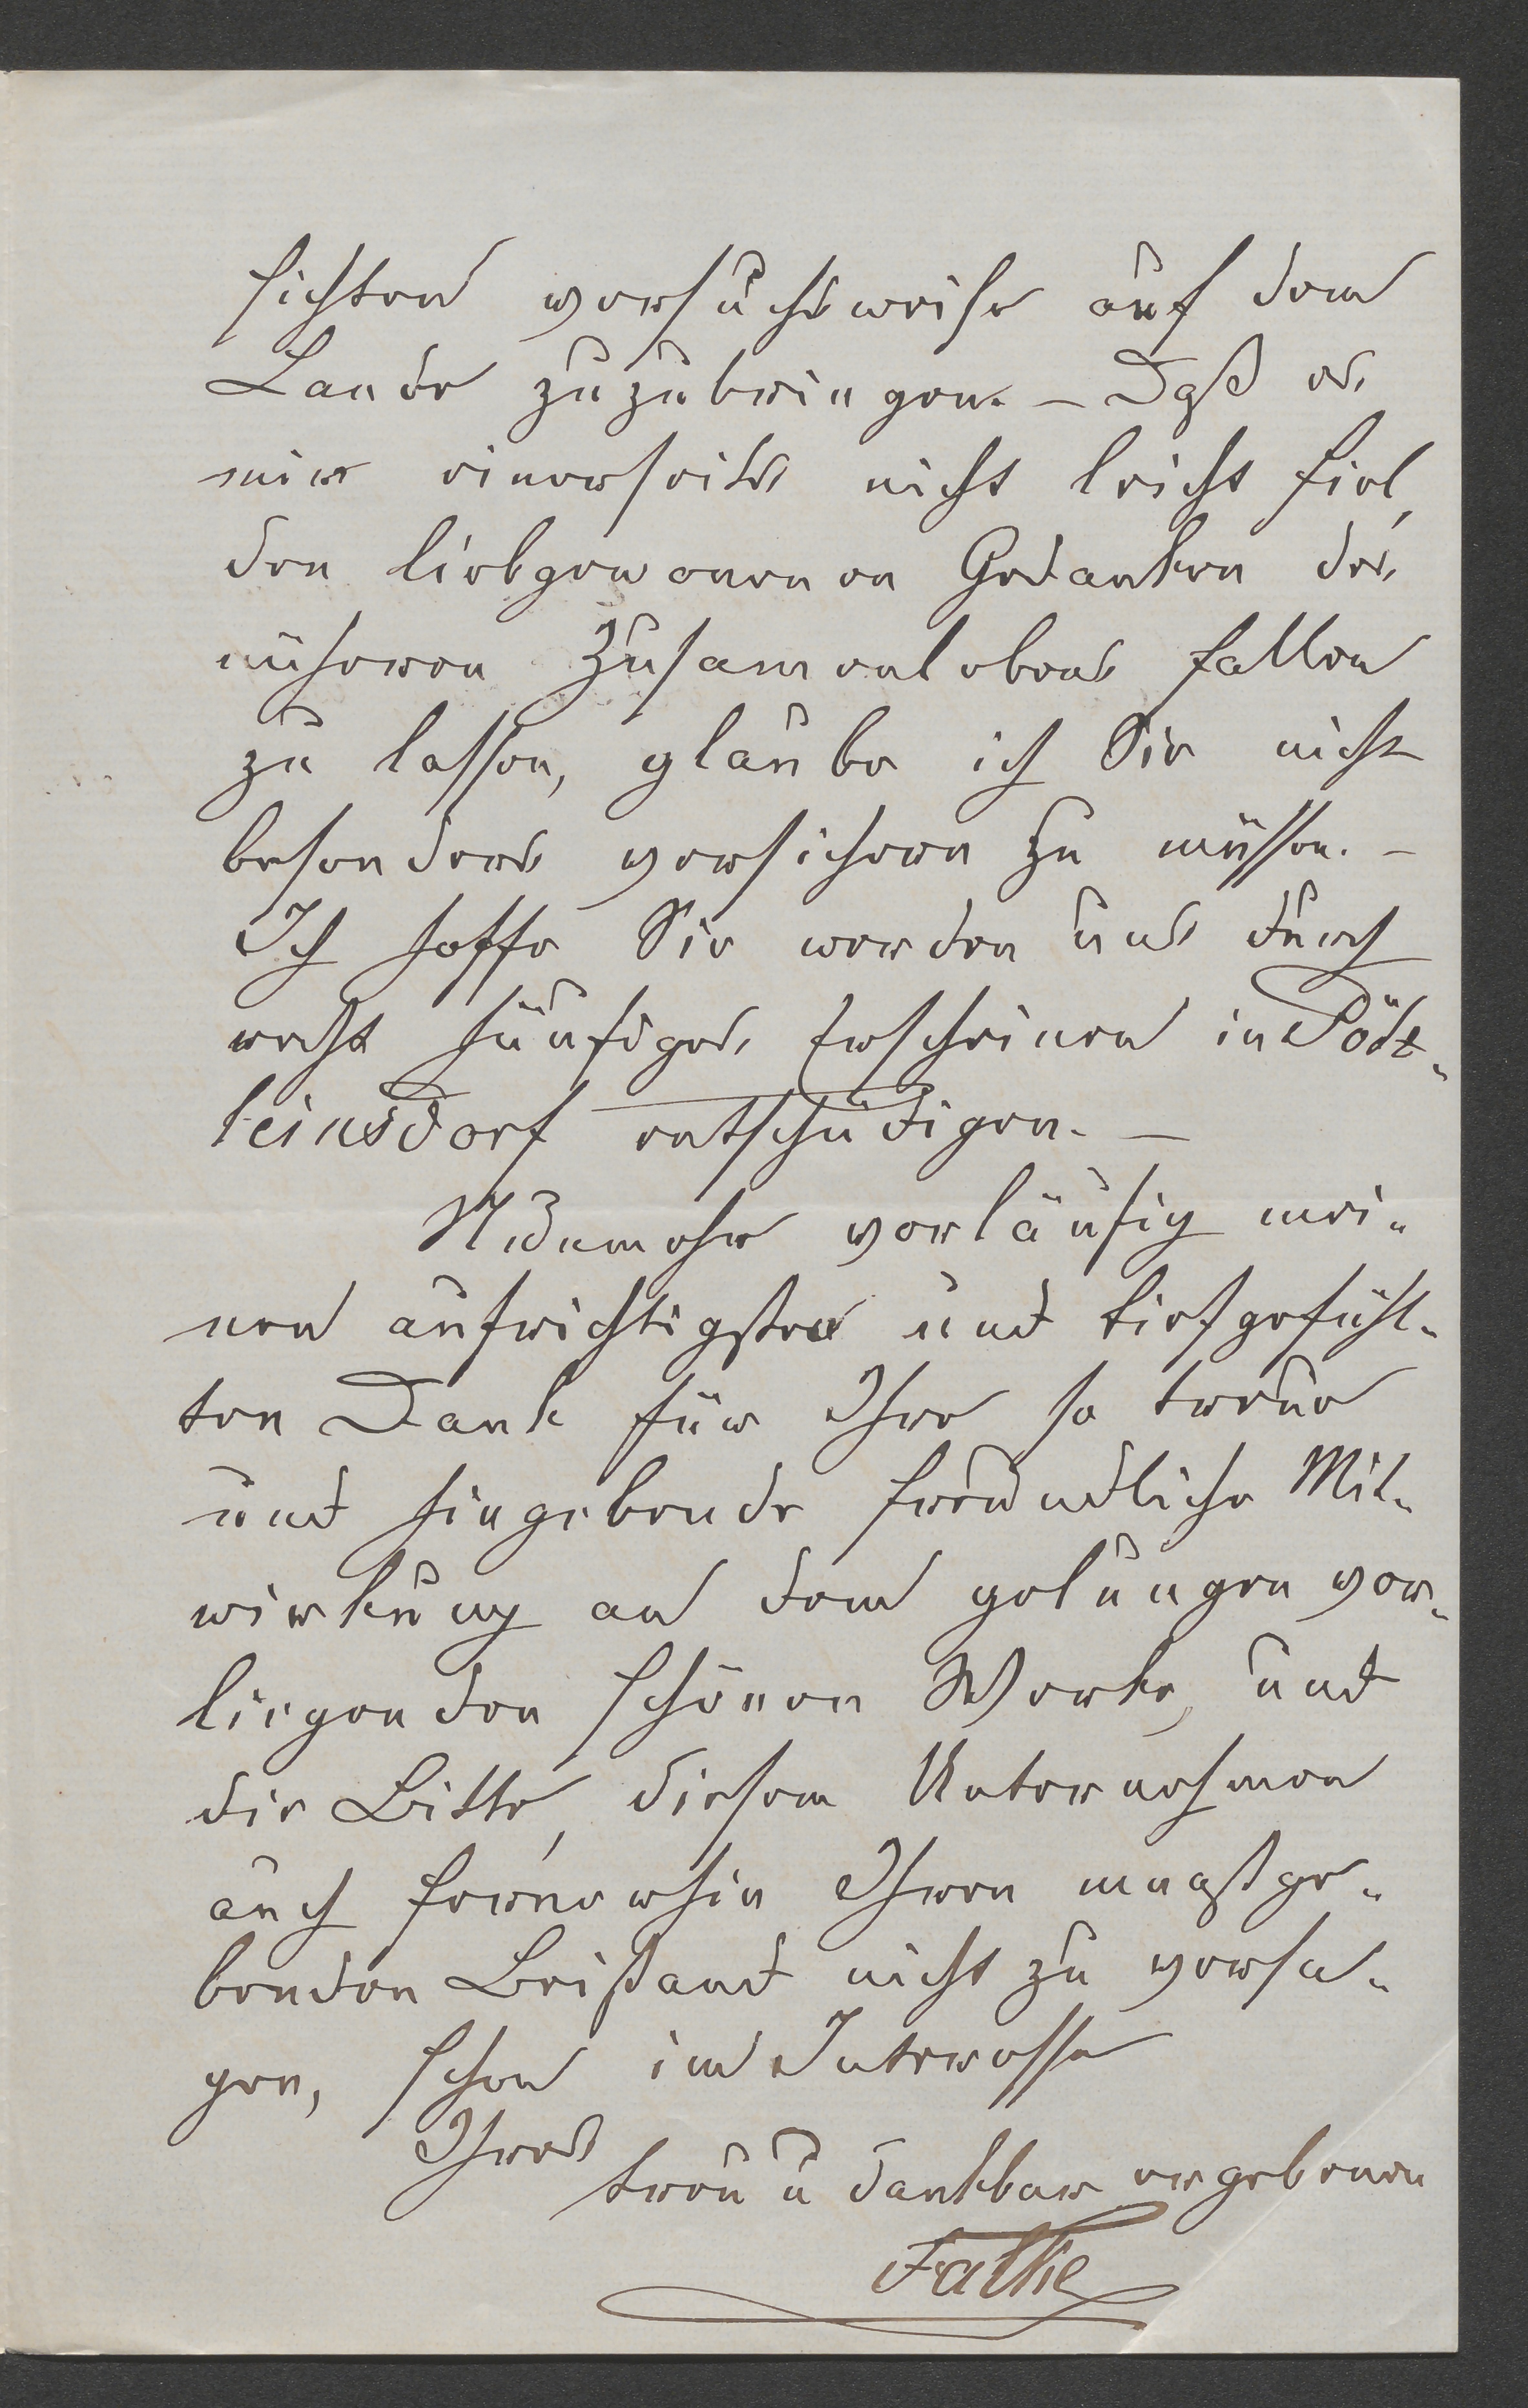 sichten versuchsweise auf dem
Lande zuzubringen. – Daß es
mir einerseits nicht leicht fiel,
den liebgewonenen Gedanken des
näheren Zusamenlebens fallen
zu lassen, glaube ich Sie nicht
besonders versichern zu müssen. –
Ich hoffe Sie werden uns durch
recht häufiges Erscheinen in Pötz-
leinsdorf entschädigen. –
Nunmehr vorläufig mei-
nen aufrichtigsten und tiefgefühl-
ten Dank für Ihre so treue
und hingebende freundliche Mit-
wirkung an dem gelungen vor-
liegenden schönen Werke, und
die Bitte, diesem Unternehmen
auch fernerhin Ihren maaßge-
benden Beistand nicht zu versa-
gen, schon im Interesse
Ihres
treu u dankbar ergebenen
Falke